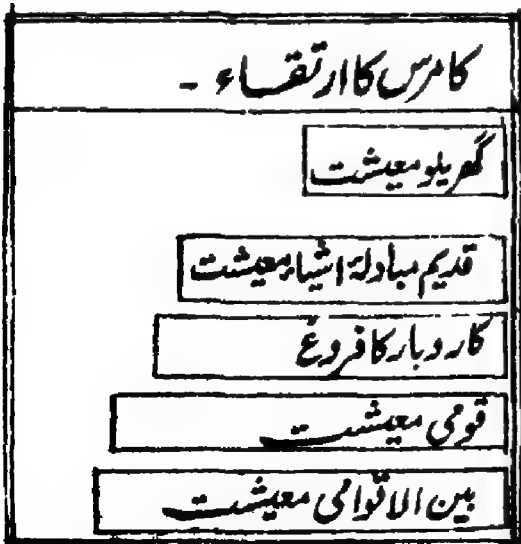 کامرس کا ارتقاء -
گھریلو معیشت
قدیم مبادلۂ اشیاء معیشت
کاروبار کا فروغ
قومی معیشت
بین الاقوامی معیشت